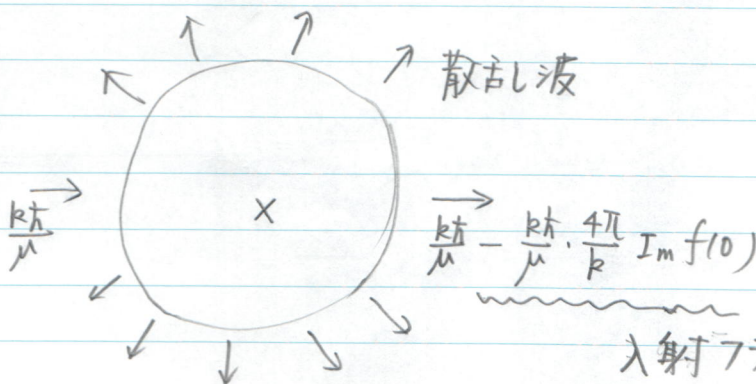 散乱波
kħ/μ
×
kħ/μ − kħ/μ · 4π/k Im f(0)
入射